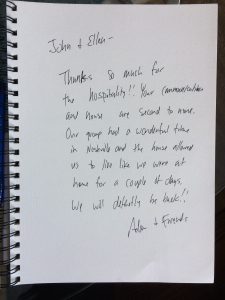 John + Ellen -
Thanks so much for
the hospitality!! Your communication
and house are second to none.
Our group had a wonderful time
in Nashville and the house allowed
us to live like we were at
home for a couple of days.
We will definitely be back!!
Adam + Friends